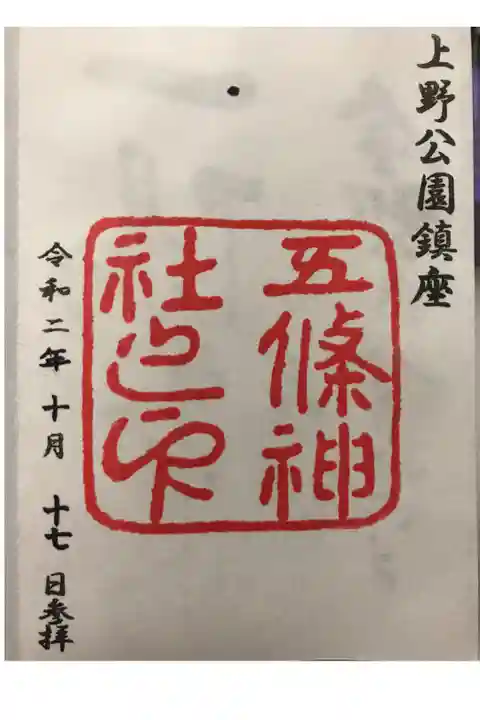 上野公園鎮座
五條神
社之印
令和二年十月十七日参拝